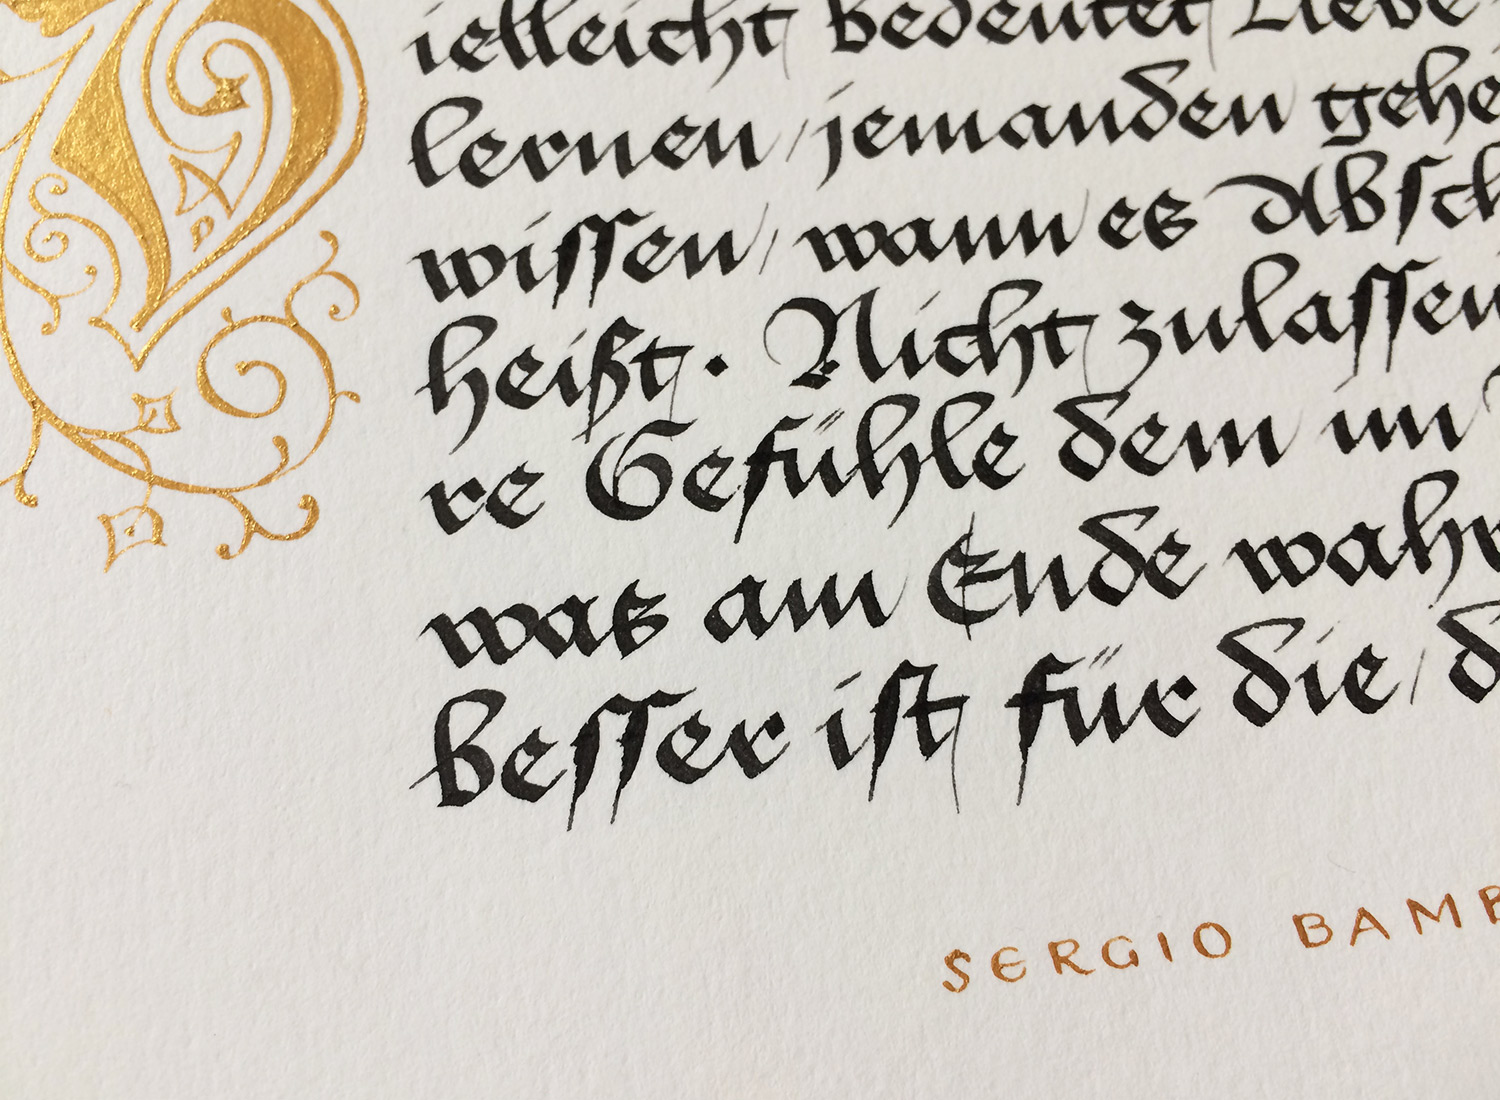 Vielleicht bedeutet Liebe
lernen, jemanden gehe
wissen, wann es Absch
heißt. Nicht zulassen
re Gefühle dem im
was am Ende wahr
besser ist für die, d
SERGIO BAMB